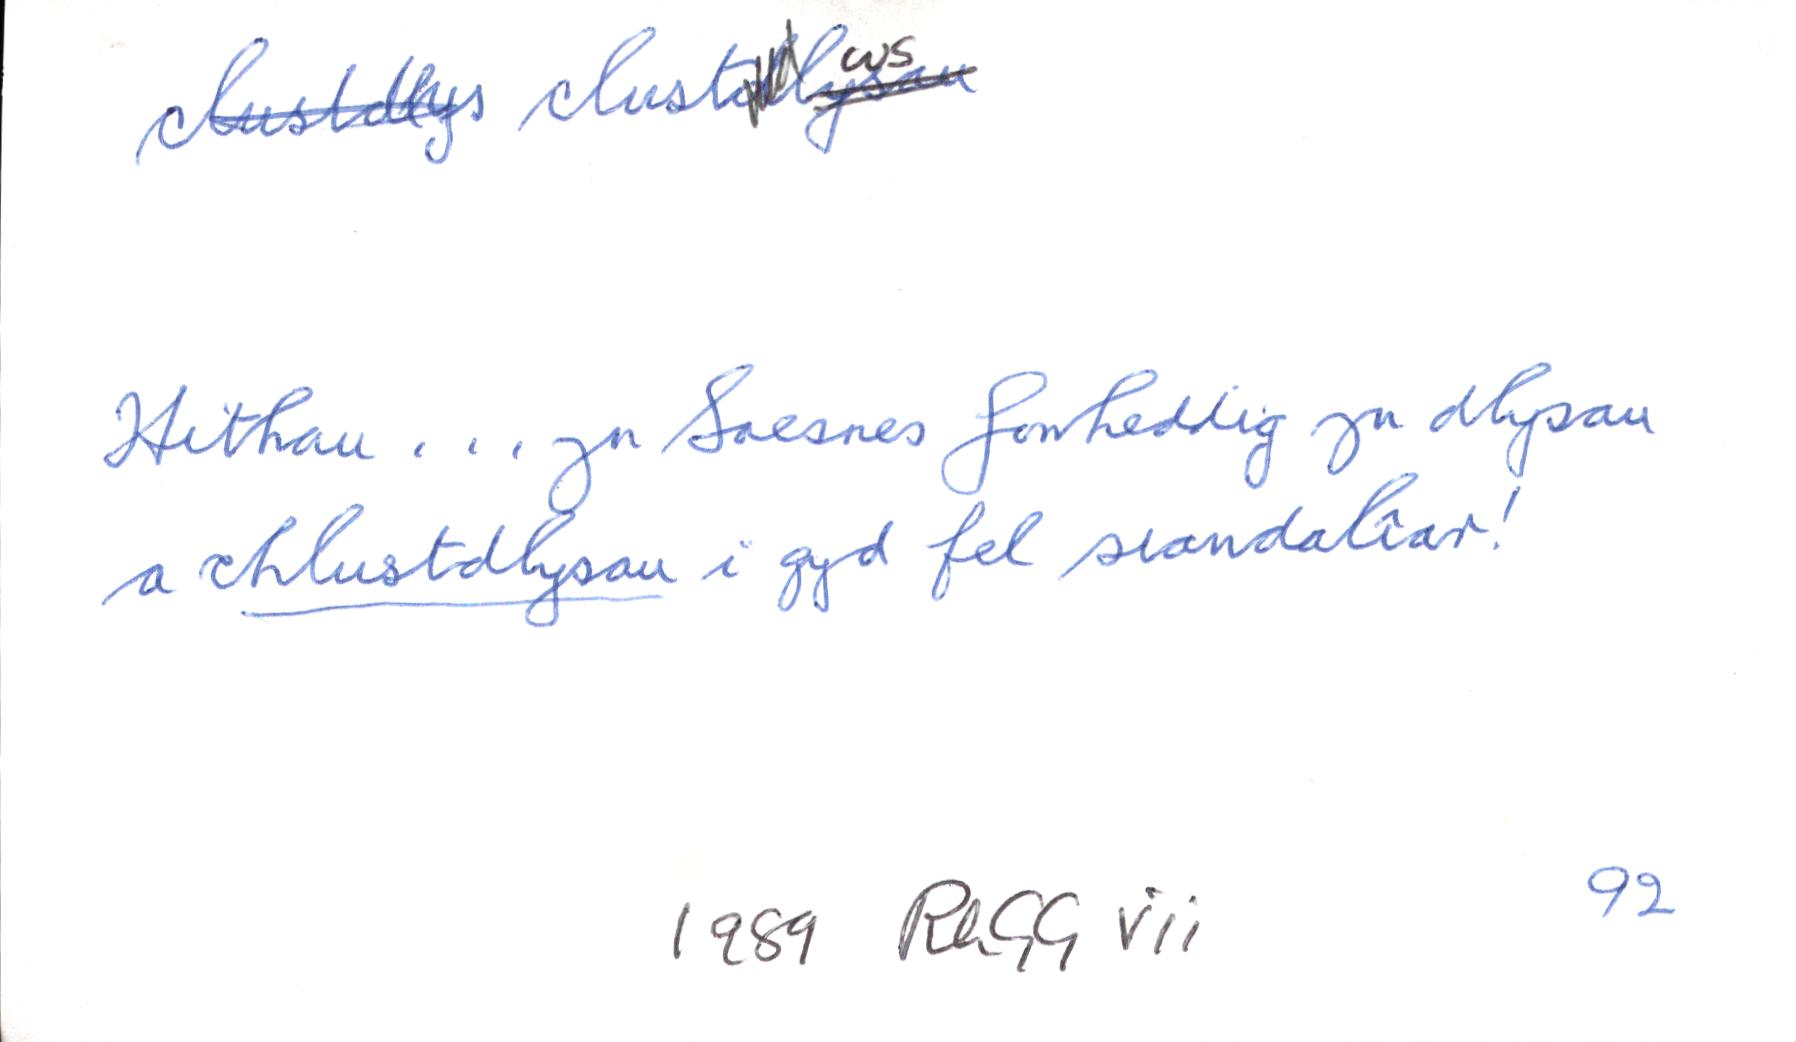 clustdlys clustdlysau ws
Hithau . . . yn Saesnes fonheddig yn dlysau
a chlustdlysau i gyd fel siandalîar!
92
1989 RhGG vii